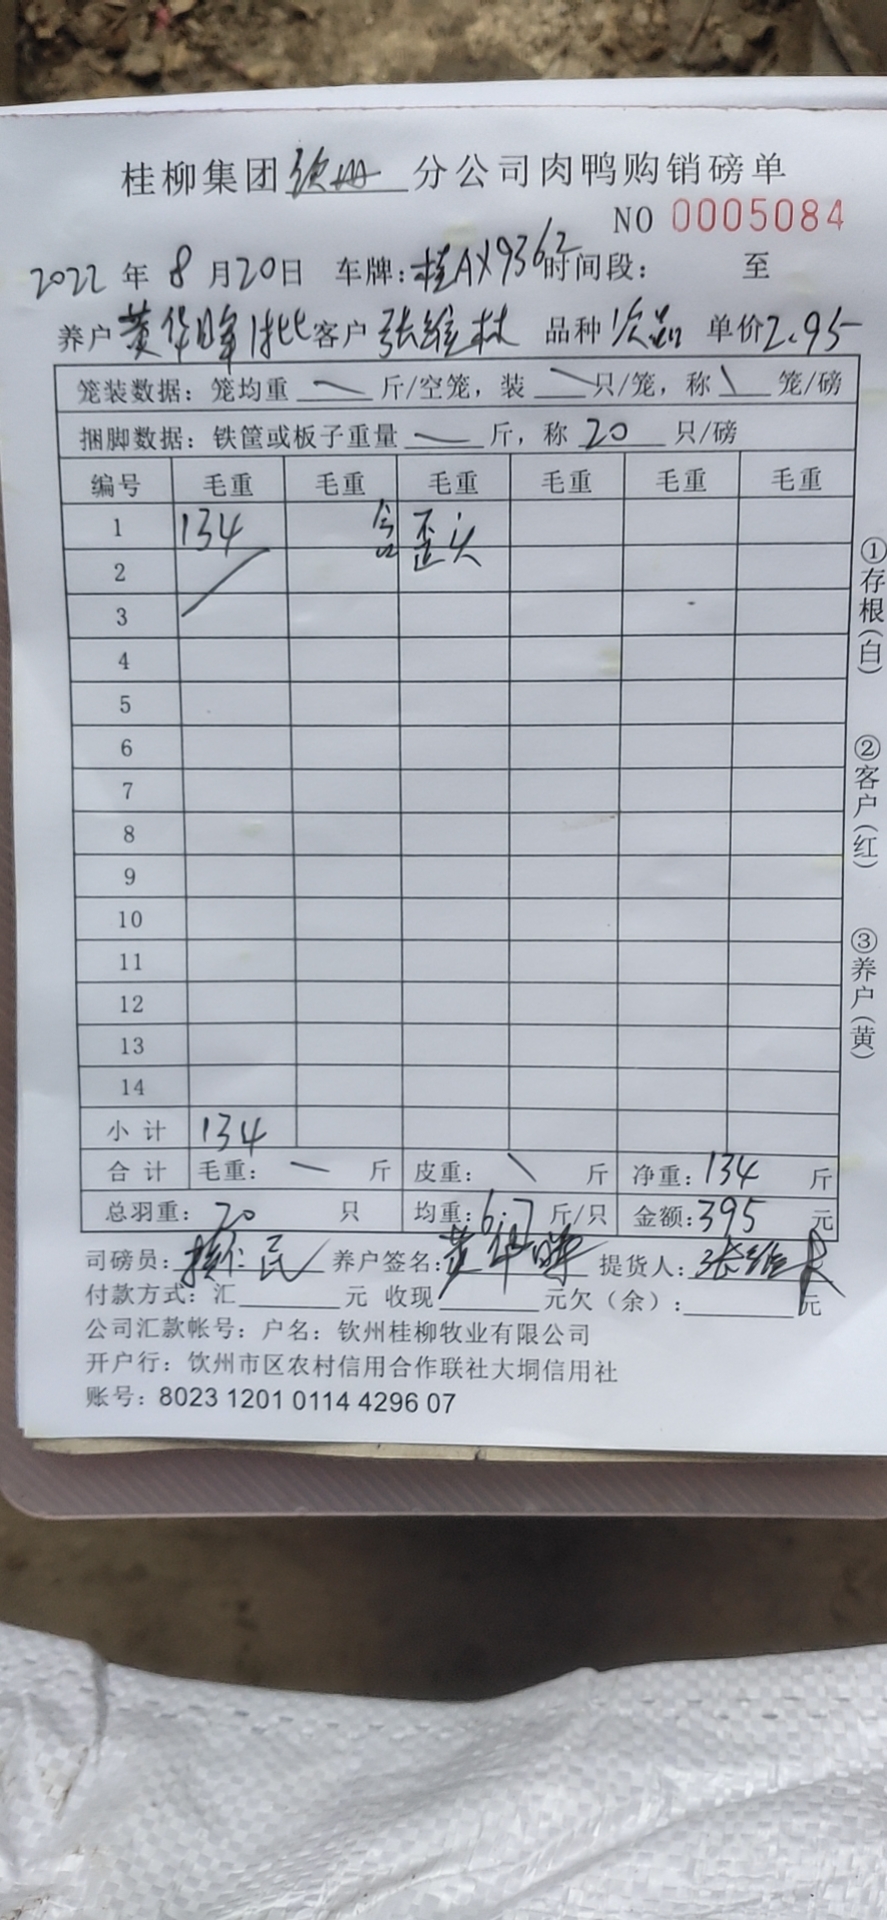 桂柳集团钦州分公司肉鸭购销磅单
NO 0005084
2022年8月20日 车牌:桂AX9362 时间段: 至
养户黄华晖1批 客户张维林 品种次品 单价2.95
笼装数据: 笼均重 斤/空笼, 装 只/笼, 称 笼/磅
捆脚数据: 铁筐或板子重量 斤, 称 20 只/磅
编号 毛重 毛重 毛重 毛重 毛重 毛重
1 134 含歪头
2
3
4
5
6
7
8
9
10
11
12
13
14
小计 134
合计 毛重: 斤 皮重: 斤 净重: 134 斤
总羽重: 20 只 均重: 6.7 斤/只 金额: 395 元
司磅员: 养户签名: 黄华晖 提货人: 张维林
付款方式: 汇 元 收现 元欠(余): 元
公司汇款帐号: 户名: 钦州桂柳牧业有限公司
开户行: 钦州市区农村信用合作联社大垌信用社
账号: 8023 1201 0114 4296 07
①存根(白)
②客户(红)
③养户(黄)